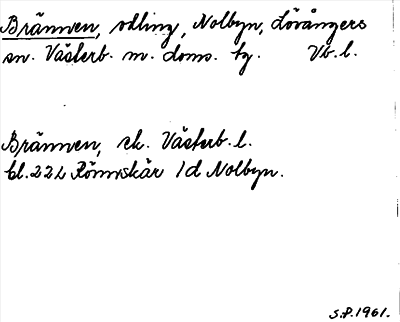 Brännen, odling, Nolbyn, Lövångers
sn. Västerb. m. doms. tg. Vb. l.
Brännen, ek. Västerb. l.
bl. 22 L Rönnskär 1d Nolbyn.
S.P. 1961.